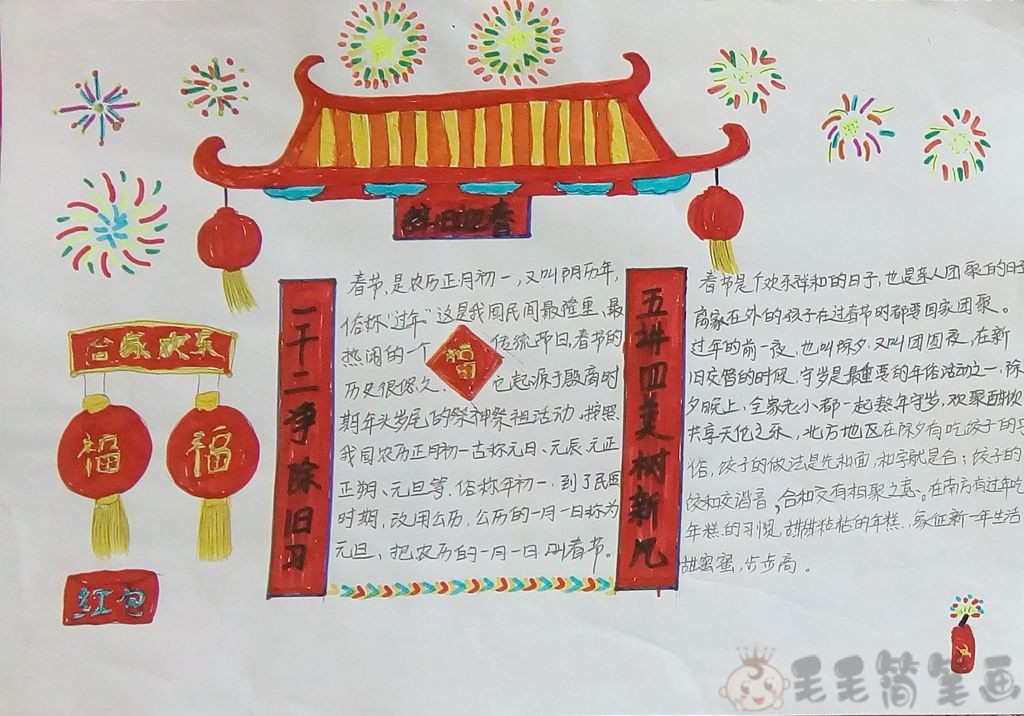 辞旧迎春
合家欢乐
福
福
红包
一干二净除旧习
五讲四美树新风
福
春节,是农历正月初一,又叫阴历年,
俗称"过年"这是我国民间最隆重、最
热闹的一个传统节日。春节的
历史很悠久、它起源于殷商时
期年头岁尾的祭神祭祖活动。按照
我国农历正月初一古称元日、元辰、元正
正朔、元旦等,俗称年初一,到了民国
时期,改用公历,公历的一月一日称为
元旦,把农历的一月一日叫春节。
春节是个欢乐祥和的日子,也是亲人团聚的日子
离家在外的孩子在过春节时都要回家团聚。
过年的前一夜,也叫除夕,又叫团圆夜,在新
旧交替的时候,守岁是最重要的年俗活动之一,除
夕晚上,全家老小都一起熬年守岁,欢聚酣饮
共享天伦之乐,北方地区在除夕有吃饺子的习
俗,饺子的做法是先和面,和字就是合;饺子的
饺和交谐音,合和交有相聚之意。在南方有过年吃
年糕的习惯,甜甜粘粘的年糕,象征新一年生活
甜蜜蜜,步步高。
毛毛简笔画